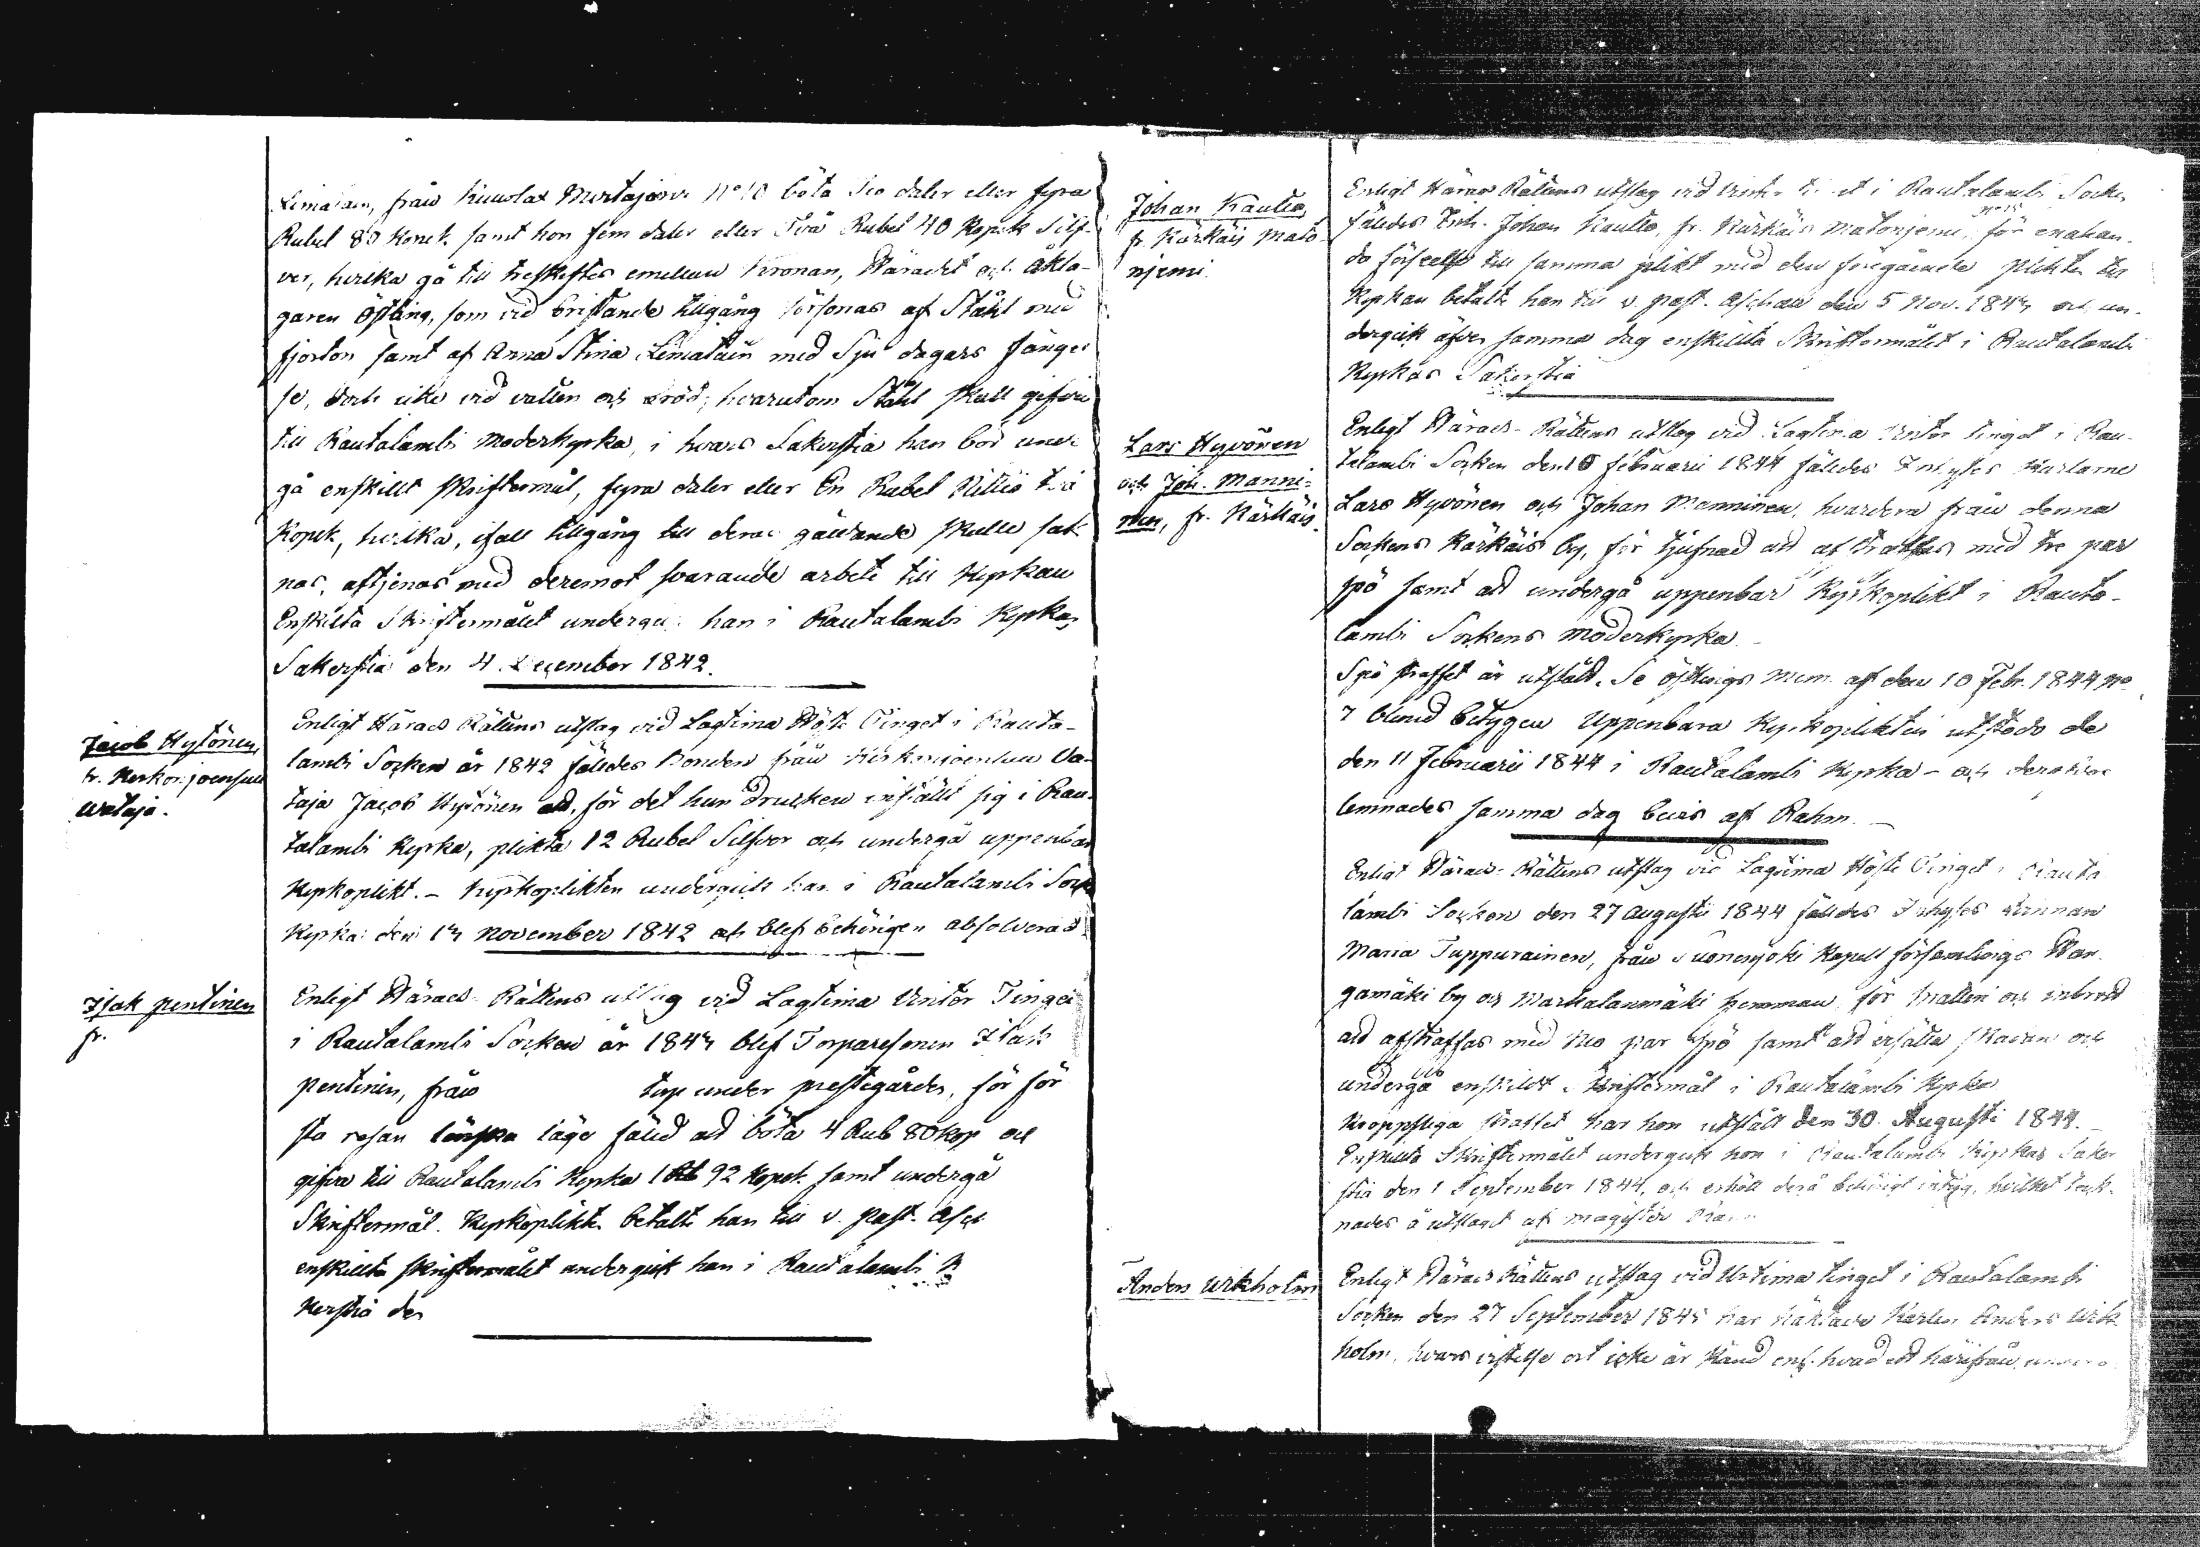 från Kuuslax Mustajärvi No 10 böta Tio daler eller fyra
Rubel 80 Kopek samt hon fem daler eller Två Rubel 40 Kopek Silf-
ver, hvilka gå till treskiftes emellan Kronan, Häradet och åkla-
garen Östling, som vid bristande tillgång försonas af Ståhl med
fjorton samt af Anna Stina Limatain med Sju dagars fänge
se, dock icke vid vatten och bröd; hvarutom Ståhl skall gifva
till Rautalambi Moderkyrka, i hvars Sakerstia han bör under
gå enskillt skriftermål, fyra daler eller En Rubel Nittio två
Kopek, hvilka, ifall tillgång till deras gäldande skulle sak
nas, aftjenas med deremot svarande arbete till Kyrkan
Enskilta Skriftermålet undergick han i Rautalambi Kyrkas
Sakerstia den 4 December 1842.
Jacob Hytönen,
fr. Kerkonjoensuu
wataja.
Enligt Härads Rättens utslag vid Lagtima Höste Tinget i Rauta-
lambi Socken år 1842 fälldes Bonden från Kerkonjoensuu Va-
taja Jacob Hytönen att, för det han drucken infällt sig i Rau-
talambi Kyrka, plikta 12 Rubel Silfver och undergå uppenbar
Kyrkoplikt. - Kyrkoplikten undergick han i Rautalambi Sock
Kyrka den 13 November 1842 och blef behörigen absolverad
Isak Pentinen
fr.
Enligt Härads-Rättens utslag vid Lagtima Vinter Tinget
i Rautalambi Socken år 1843 blef Torparesonen Isak
Pentinen, från torp under prestegården, för för
sta resan lönska läge fälld att böta 4 Rub 80 kop och
gifva till Rautalambi Kyrka 1 Rb 92 Kopek samt undergå
Skriftermål. Kyrkoplikten betalte han till v. Past.
enskillta skriftermålet undergick han i Rautalambi
kerstia den
Johan Kautto,
fr. Kärkäis Mato-
njemi.
Enligt Härads Rättens utslag vid Vinter i Rautalambi Socken
fälldes Inh. Johan Kautto, fr. Kärkäis Matonjemi No 15 för enahan-
da förseelse till samma plikt med den föregående plikten till
Kyrkan betalte han till v. past. Aschan den 5 Nov. 1843 och un-
dergick äfven samma dag enskillta Skriftermålet i Rautalambi
Kyrkas Sakerstia
Lars Hyvönen
och Joh. Manni-
nen, fr. Kärkäis.
Enligt Härads-Rättens utslag vid Lagtima Vinter tinget i Rau-
talambi Socken den 10 Februarii 1844 fälldes Inhyses Karlarne
Lars Hyvönen och Johan Manninen, hvardera från denna
Sockens Kärkäis by, för tjufnad att afstraffas med tre par
spö samt att undergå uppenbar Kyrkoplikt i Rauta-
lambi Sockens Moderkyrka. -
Spö straffet är utstått. Se Östlings Mem. af den 10 Febr. 1844 No
7 bland betygen Uppenbara Kyrkoplikten utstodo de
den 11 Februarii 1844 i Rautalambi Kyrka - och
lemnades samma dag bevis af Rahm. -
Enligt Härads-Rättens utslag vid Lagtima Höste Tinget i Rauta
lambi Socken den 27 Augusti 1844 fälldes Inhyses Qvinnan
Maria Tuppurainen, från Suonenjoki Kapell församlings Han-
gamäki by och Markalanmäki hemman, för snatteri och inbrott
att afstraffas med Tio par spö samt att ersätta skadan och
undergå enskildt Skriftermål i Rautalambi Kyrka
Kroppsliga straffet har hon utstått den 30 Augusti 1844. -
Enskilta Skriftermålet undergick hon i Rautalambi Kyrkas Saker
stia den 1 September 1844, och erhöll derå behörigt intyg, hvilket teck-
nades å utslaget af Magister
Anders Wikholm
Enligt Härads Rättens utslag vid Urtima tinget i Rautalambi
Socken den 27 September 1845 har häktade Karlen Anders Wik
holm, hvars vistelse ort icke är känd enl. hvad ett härifrån